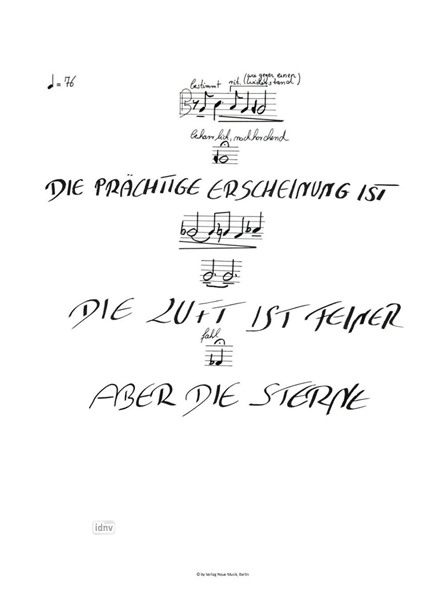 ♩ = 76
bestimmt rit. (wie gegen einen
Widerstand)
beharrlich, nachhorchend
DIE PRÄCHTIGE ERSCHEINUNG IST
DIE LUFT IST FEINER
fahl
ABER DIE STERNE
idnv
© by Verlag Neue Musik, Berlin